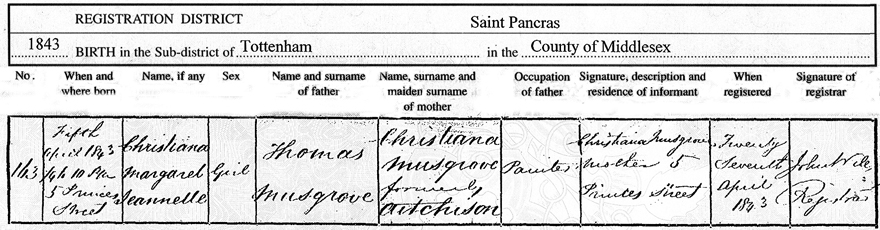 REGISTRATION DISTRICT Saint Pancras
1843 BIRTH in the Sub-district of Tottenham in the County of Middlesex
No. When and where born Name, if any Sex Name and surname of father Name, surname and maiden surname of mother Occupation of father Signature, description and residence of informant When registered Signature of registrar
143
Fifth
April 1843
10 Pm
5 Princes
Street
Christiana
Margaret
Jeannelle
Girl
Thomas
Musgrove
Christiana
Musgrove
formerly
Aitchison
Painter
Christiana Musgrove
Mother 5
Princes Street
Twenty
Seventh
April
1843
John
Registrar